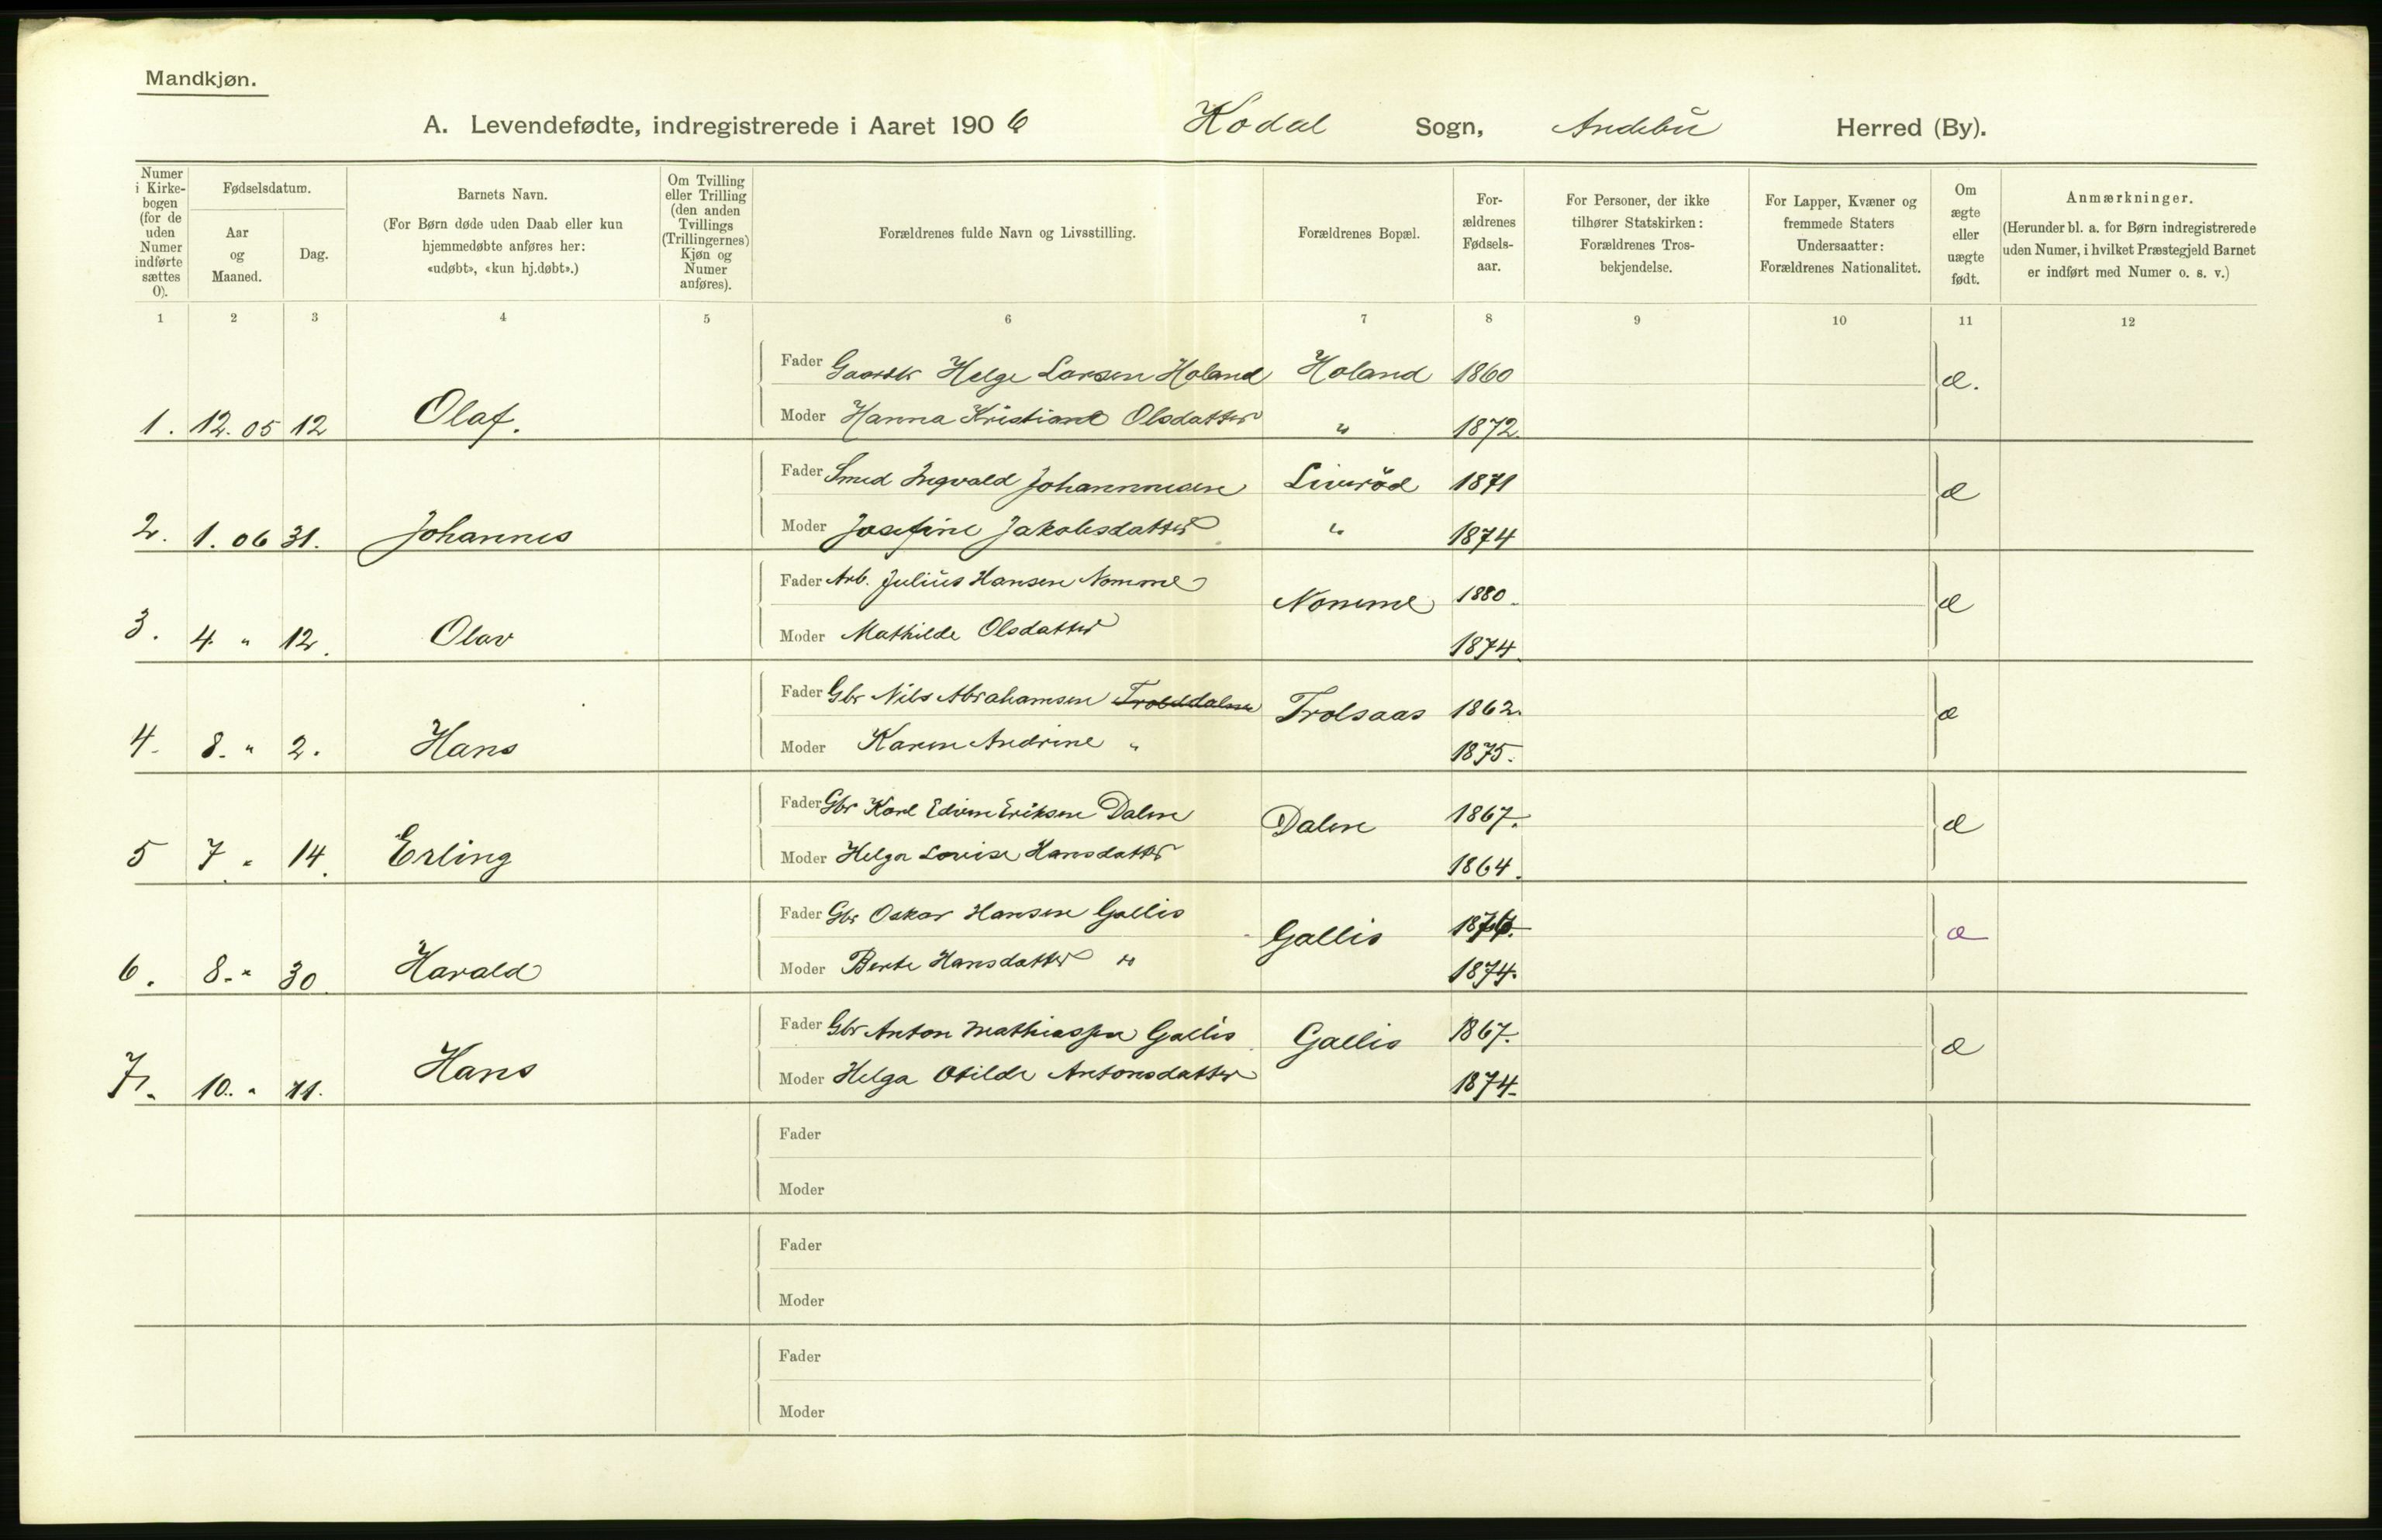 Mandkjøn.
A. Levendefødte, indregistrerede i Aaret 1906 Kodal Sogn, Andebu Herred (By).
Numer i Kirkebogen (for de uden Numer indførte sættes 0).
Fødselsdatum.
Aar og Maaned.
Dag.
Barnets Navn.
(For Børn døde uden Daab eller kun hjemmedøbte anføres her: «udøbt», «kun hj.døbt».)
Om Tvilling eller Trilling (den anden Tvillings (Trillingernes) Kjøn og Numer anføres).
Forældrenes fulde Navn og Livsstilling.
Forældrenes Bopæl.
Forældrenes Fødselsaar.
For Personer, der ikke tilhører Statskirken: Forældrenes Trosbekjendelse.
For Lapper, Kvæner og fremmede Staters Undersaatter: Forældrenes Nationalitet.
Om ægte eller uægte født.
Anmærkninger.
(Herunder bl. a. for Børn indregistrerede uden Numer, i hvilket Præstegjeld Barnet er indført med Numer o. s. v.)
1 2 3 4 5 6 7 8 9 10 11 12
Fader Helge Larsen Holand Holand 1860 æ.
1. 12. 05 12 Olaf. Moder Hanna Kristiane Olsdatter " 1872.
Fader Smed Ingvald Johannesen Liverød 1871 æ
2. 1. 06 31. Johannes Moder Josefine Jakobsdatter " 1874
Fader Arb. Julius Hansen Nomme Nomme 1880. æ
3. 4 " 12. Olav Moder Mathilde Olsdatter 1874.
Fader Gbr Nils Abrahamsen Trolddalen Trolsaas 1862. æ
4. 8. " 2. Hans Moder Karen Andrine " 1875.
Fader Gbr Karl Edvin Eriksen Dalen Dalen 1867. æ
5 7 " 14. Erling Moder Helga Lovise Hansdatter 1864.
Fader Gbr Oskar Hansen Gallis Gallis æ
6. 8. " 30. Harald Moder Berte Hansdatter " 1874.
Fader Gbr Anton Mathiassen Gallis Gallis 1867. æ
7. 10. " 11. Hans Moder Helga Otilde Antonsdatter 1874.
Fader
Moder
Fader
Moder
Fader
Moder